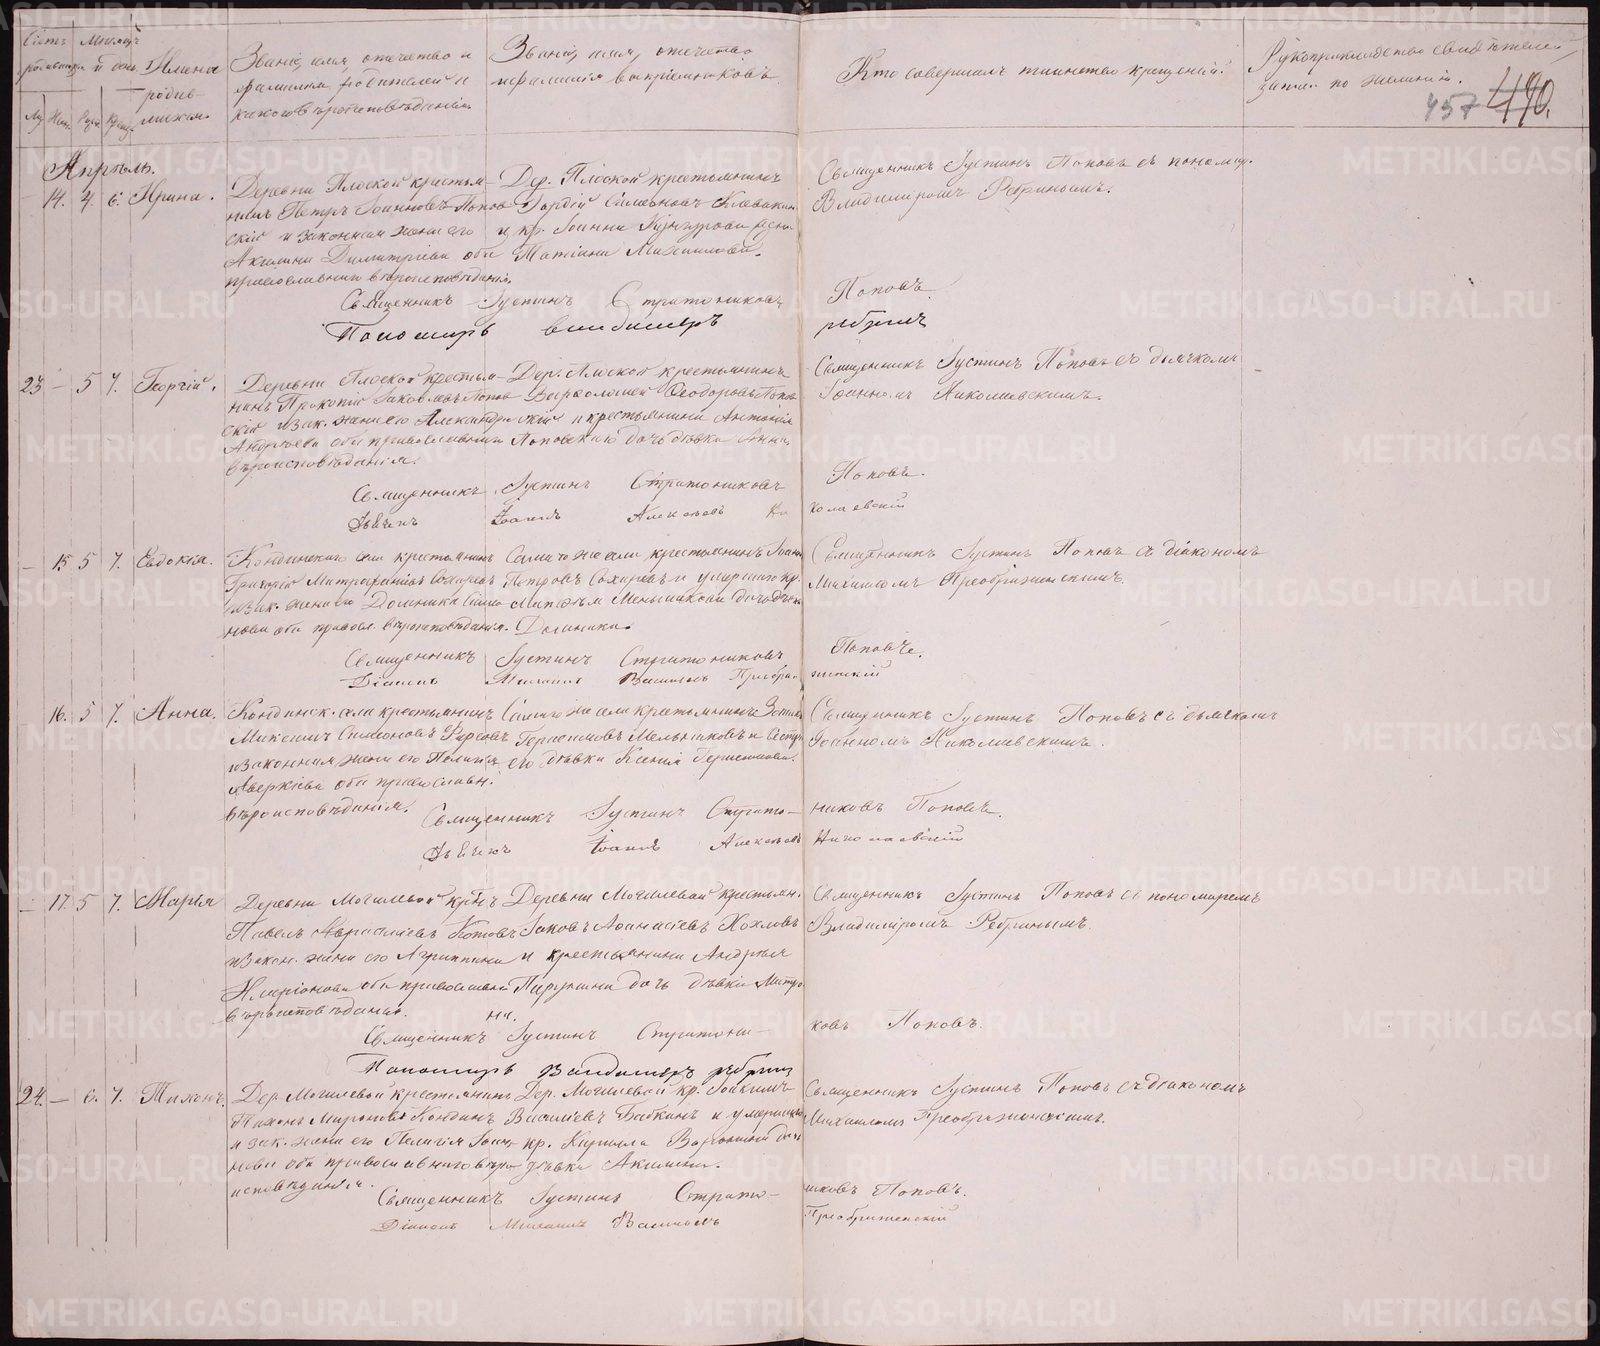 Счетъ Мѣсяцъ
родившихся и день Имена
родив-
шихся.
Званіе, имя, отчество и
фамилія родителей и
какого вѣроисповѣданія
Званіе, имя, отчество
и фамилія воспріемниковъ
Кто совершалъ таинство крещенія.
Рукоприкладство свидѣтелей
записи по желанію.
457 490.
Апрѣль.
14. 4. 6. Ирина.
Деревни Плоской крестья-
нинъ Петръ Іоанновъ Попов-
скій и законная жена его
Акилина Димитріева оба
православнаго вѣроисповѣданія.
Дер. Плоской крестьянинъ
Гордій Симеоновъ Клевакин
и кр. Іоанна
Татіана Михаилова.
Священникъ Іустинъ Поповъ съ пономар.
Владимиромъ Ребринымъ.
Священникъ Іустинъ Стратониковъ Поповъ.
Пономарь Владимеръ Ребринъ
23 — 5 7. Георгій.
Деревни Плоской крестья-
нинъ Прокопій Іаковлевъ Попов-
скій и зак. жена его Александра
Андреева оба православнаго
вѣроисповѣданія.
Дер. Плоской крестьянинъ
Варѳоломей Ѳеодоровъ Попов
скій и крестьянина Антонія
Поповскаго дочь дѣвка Анна.
Священникъ Іустинъ Поповъ съ дьячкомъ
Іоанномъ Николаевскимъ.
Священникъ Іустинъ Стратониковъ Поповъ.
Дьячекъ Іоаннъ Алексѣевъ Николаевскій
— 15 5 7. Евдокія.
Кондинскаго села крестьянинъ
Григорій Митрофановъ Сахаровъ
и зак. жена его Домника Симо-
нова оба правосл. вѣроисповѣданія.
Самаго же села крестьянинъ Іоаннъ
Петровъ Сахаровъ и умершаго кр.
Меньшикова дочь дѣвка
Домника.
Священникъ Іустинъ Поповъ съ діакономъ
Михаиломъ Преображенскимъ.
Священникъ Іустинъ Стратониковъ Поповъ.
Діаконъ Михаилъ Васильевъ Преображенскій
16. 5 7. Анна.
Кондинск. села крестьянинъ
Максимъ Симеоновъ Фирсовъ
и законная жена его Пелагія
Аверкіева оба православн.
вѣроисповѣданія.
Самаго же села крестьянинъ
Герасимовъ Мельниковъ и сестра
его дѣвка Ксенія Герасимова.
Священникъ Іустинъ Поповъ съ дьячкомъ
Іоанномъ Николаевскимъ.
Священникъ Іустинъ Стратониковъ Поповъ.
Дьячекъ Іоаннъ Алексѣевъ Николаевскій
— 17. 5 7. Марья
Деревни Могилевой кр-нъ
Павелъ Котовъ
и закон. жена его Агриппина
Иларіонова оба православнаго
вѣроисповѣданія.
Деревни Могилевой крестьян.
Іаковъ Аѳанасіевъ Хохловъ
и крестьянина Андрея
дочь дѣвка Матро-
на.
Священникъ Іустинъ Поповъ съ пономаремъ
Владимиромъ Ребринымъ.
Священникъ Іустинъ Стратониковъ Поповъ.
Пономарь Владимеръ Ребринъ
24. — 6. 7. Тихонъ.
Дер. Могилевой крестьянинъ
Пахомъ Мироновъ Кондинъ
и зак. жена его Пелагія Іоан-
нова оба православнаго вѣро-
исповѣданія.
Дер. Могилевой кр. Іоакимъ
Василіевъ Бабкинъ и умершаго
кр. Кирилла Воронина дочь
дѣвка Акилина.
Священникъ Іустинъ Поповъ съ діакономъ
Михаиломъ Преображенскимъ.
Священникъ Іустинъ Стратониковъ Поповъ.
Діаконъ Михаилъ Васильевъ Преображенскій
METRIKI.GASO-URAL.RU